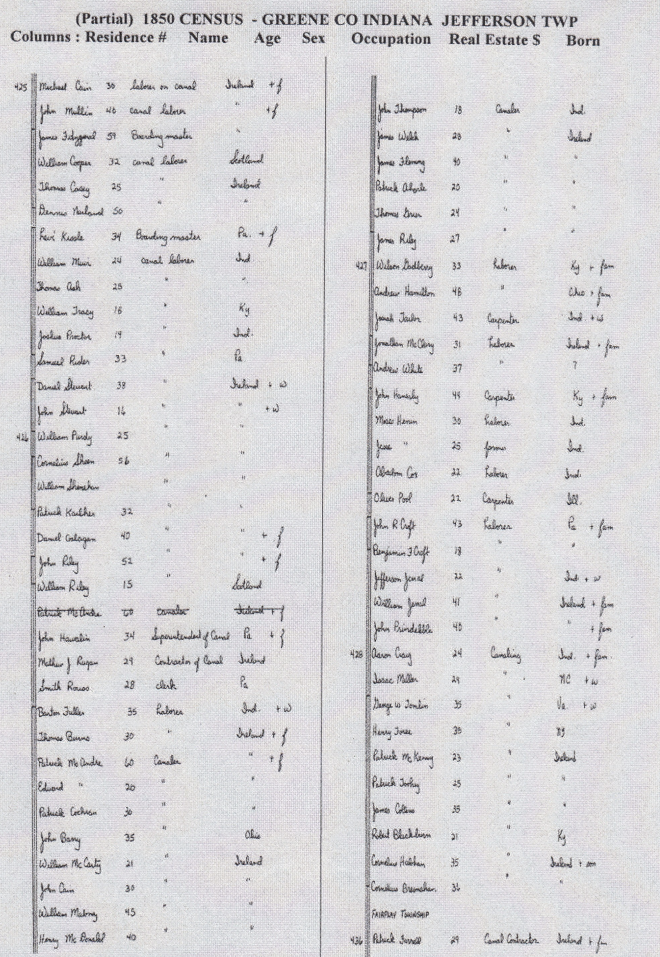 (Partial) 1850 CENSUS - GREENE CO INDIANA JEFFERSON TWP
Columns : Residence # Name Age Sex Occupation Real Estate $ Born
425 Michael Cain 30 laborer on canal Ireland + f
John Mullin 40 canal laborer " + f
James Fitzgerral 59 Boarding master "
William Cooper 32 canal laborer Scotland
Thomas Casey 25 " Ireland
Dennis 50 " "
Levi Kissle 34 Boarding master Pa. + f
William Muir 24 canal laborer Ind
Thomas Ash 25 " "
William Tracy 16 " Ky
Joshua Proctor 19 " Ind.
Samuel Rider 33 " Pa
Daniel Stewart 38 " Ireland + w
John Stewart 16 " " + w
426 William Purdy 25 " "
Cornelius Sheen 56 " "
William " "
Patrick 32 " "
Daniel 40 " " + f
John Riley 52 " " + f
William Riley 15 " Scotland
Patrick McAndre 60 Canaler Ireland + f
John 34 Superintendent of Canal Pa + f
Mathew J Ragan 29 Contractor of Canal Ireland
Smith 28 clerk Pa
Barton Fuller 35 Laborer Ind. + w
Thomas Burns 30 " Ireland + f
Patrick McAndre 60 Canaler " + f
Edward " 20 " "
Patrick Cochran 30 " "
John Barry 35 " Ohio
William McCarty 21 " Ireland
John Cain 30 " "
William Malony 45 " "
Henry McDonald 40 " "
John Thompson 18 Canaler Ind.
James Welch 28 " Ireland
James Fleming 40 " "
Patrick 20 " "
Thomas Greer 24 " "
James Riley 27 " "
427 Wilson Godberry 33 Laborer Ky + fam
Andrew Hamilton 48 " Ohio + fam
Josiah Taylor 43 Carpenter Ind + w
Jonathan McClery 31 Laborer Ireland + fam
Andrew White 37 " ?
John 44 Carpenter Ky + fam
Moses 30 Laborer Ind.
Jesse " 25 farmer Ind.
Absalom Cox 22 Laborer Ind.
Oliver Pool 22 Carpenter Ill.
John R Croft 43 Laborer Pa + fam
Benjamin F Croft 18 " "
Jefferson 22 " Ind + w
William 41 " Ireland + fam
John 45 " " + fam
428 Aaron Craig 24 Canaling Ind. + fam
Isaac Miller 24 " NC + w
George W Tomlin 35 " Va. + w
Henry 38 " Ky
Patrick McKenny 23 " Ireland
Patrick 25 " "
James Collins 35 " "
Robert Blackburn 21 " Ky
Cornelius 35 " Ireland + son
Cornelius Bresnahan 36 " "
FAIRPLAY TOWNSHIP
436 Patrick 29 Canal Contractor Ireland + fm